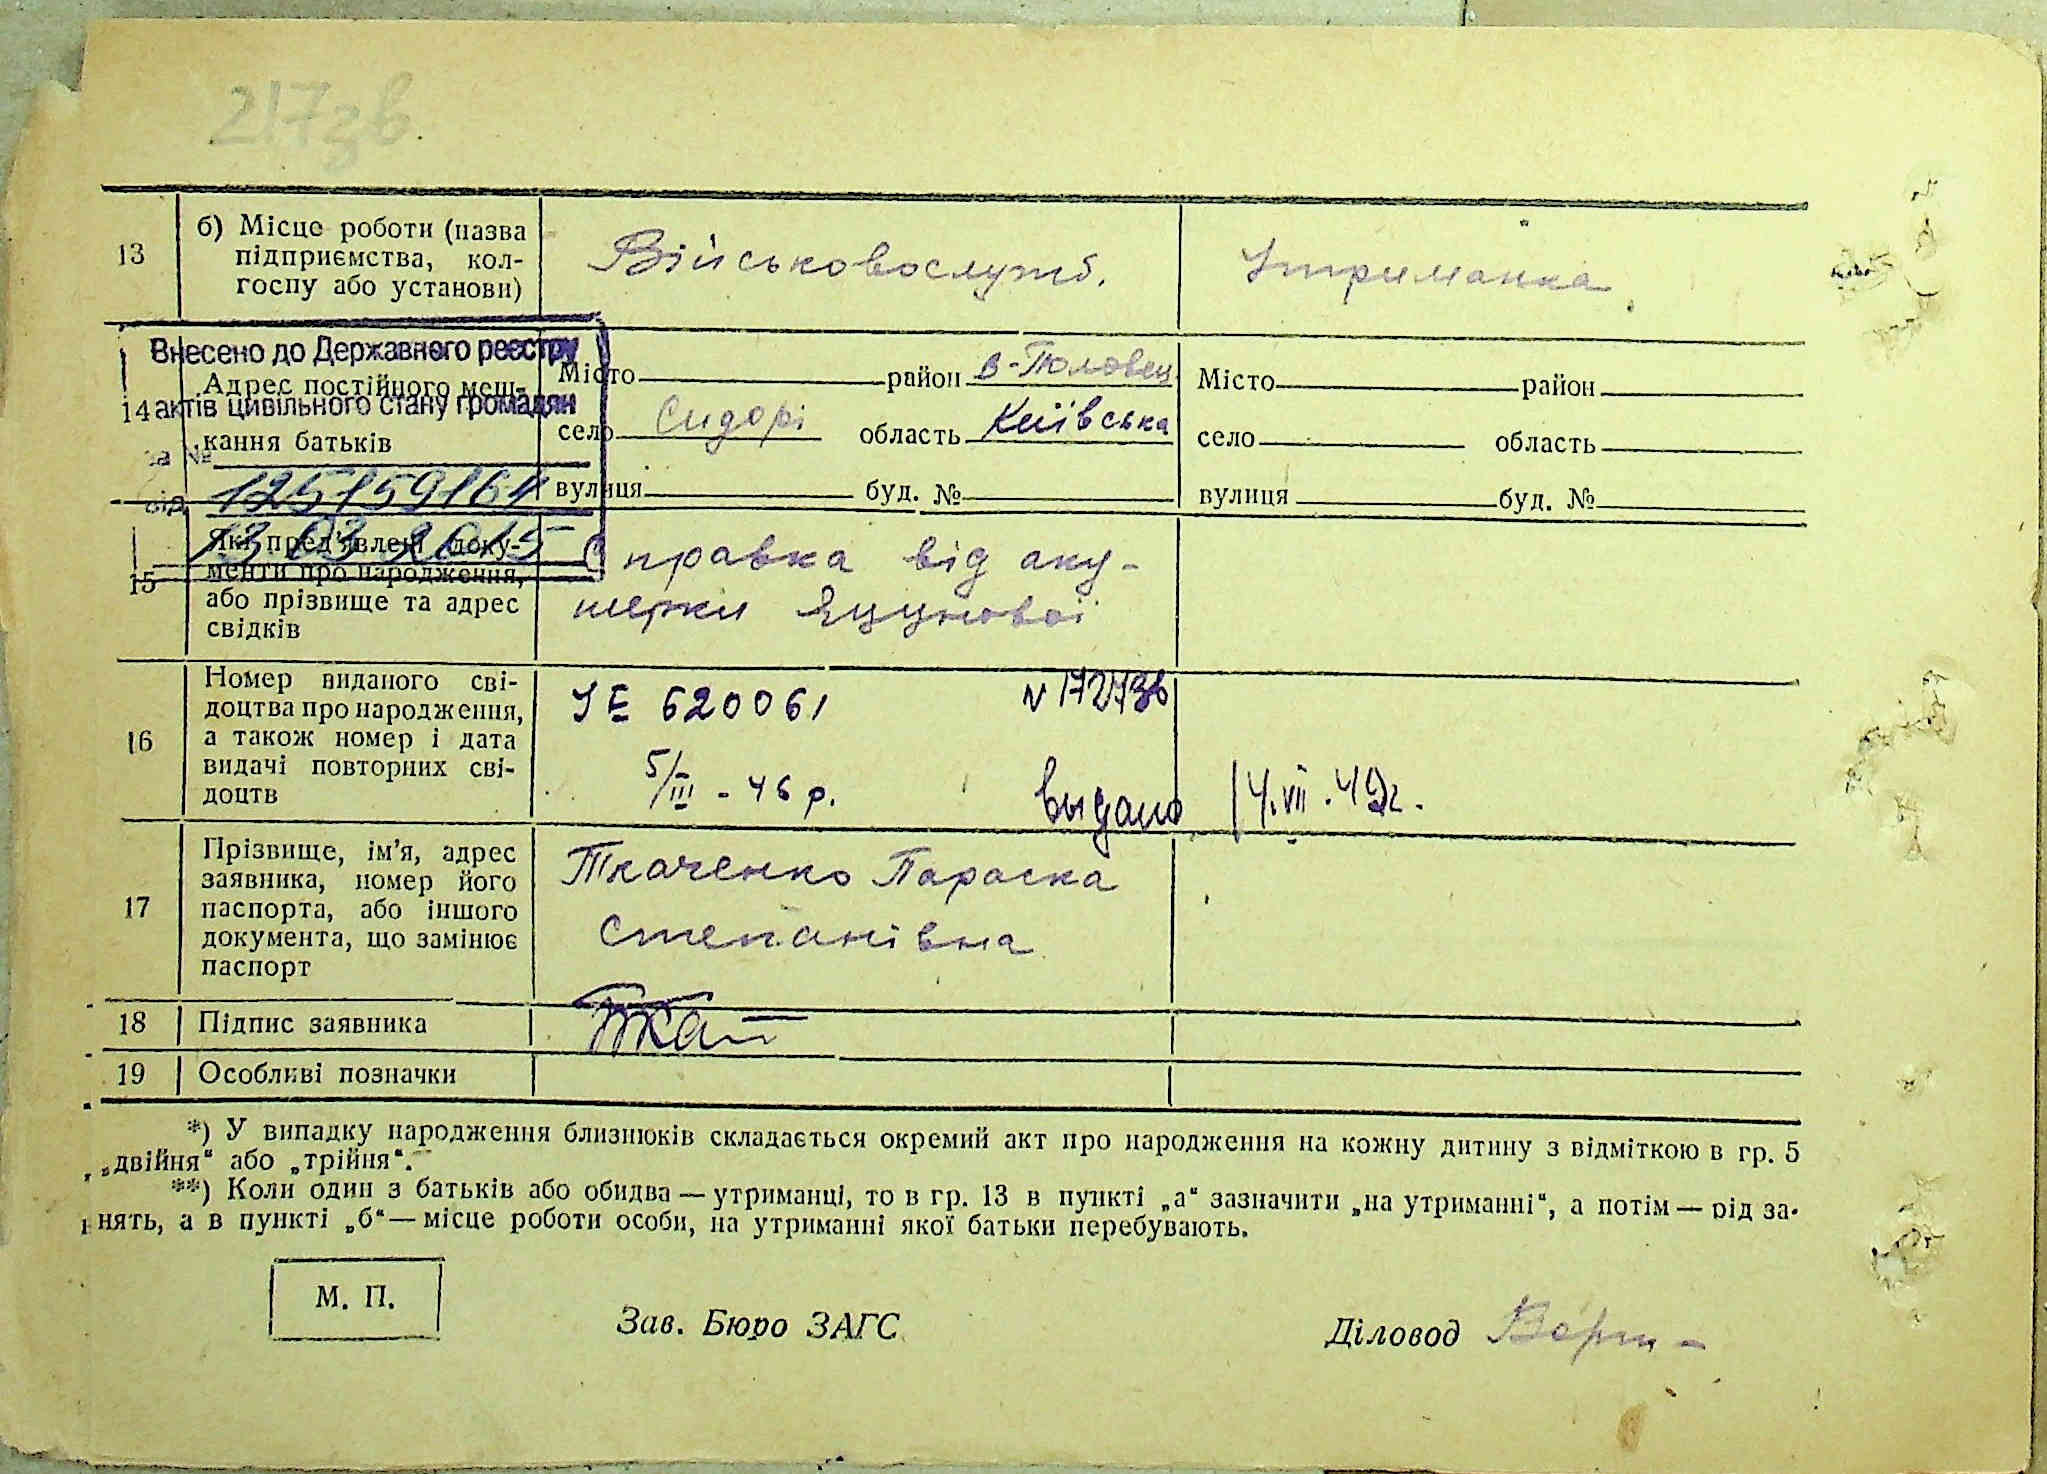 217зв.
13
б) Місце роботи (назва
підприємства, кол-
госпу або установи)
Військовослужб.
Утриманка
Внесено до Державного реєстру
актів цивільного стану громадян
за № 125159164
від 13 03 2015
14
Адрес постійного меш-
кання батьків
Місто район В-Половец
село Сидорі область Київська
вулиця буд. №
Місто район
село область
вулиця буд. №
15
Які пред'явлені доку-
менти про народження,
або прізвище та адрес
свідків
Справка від аку-
шерки Яцунової
16
Номер виданого сві-
доцтва про народження,
а також номер і дата
видачі повторних сві-
доцтв
УЕ 620061
5/III - 46 р.
выдано 14.VII.49г.
17
Прізвище, ім'я, адрес
заявника, номер його
паспорта, або іншого
документа, що замінює
паспорт
Ткаченко Параска
Степанівна
18
Підпис заявника
Ткач
19
Особливі позначки
*) У випадку народження близнюків складається окремий акт про народження на кожну дитину з відміткою в гр. 5
„двійня“ або „трійня“.
**) Коли один з батьків або обидва — утриманці, то в гр. 13 в пункті „а“ зазначити „на утриманні“, а потім — рід за-
нять, а в пункті „б“ — місце роботи особи, на утриманні якої батьки перебувають.
М. П.
Зав. Бюро ЗАГС
Діловод